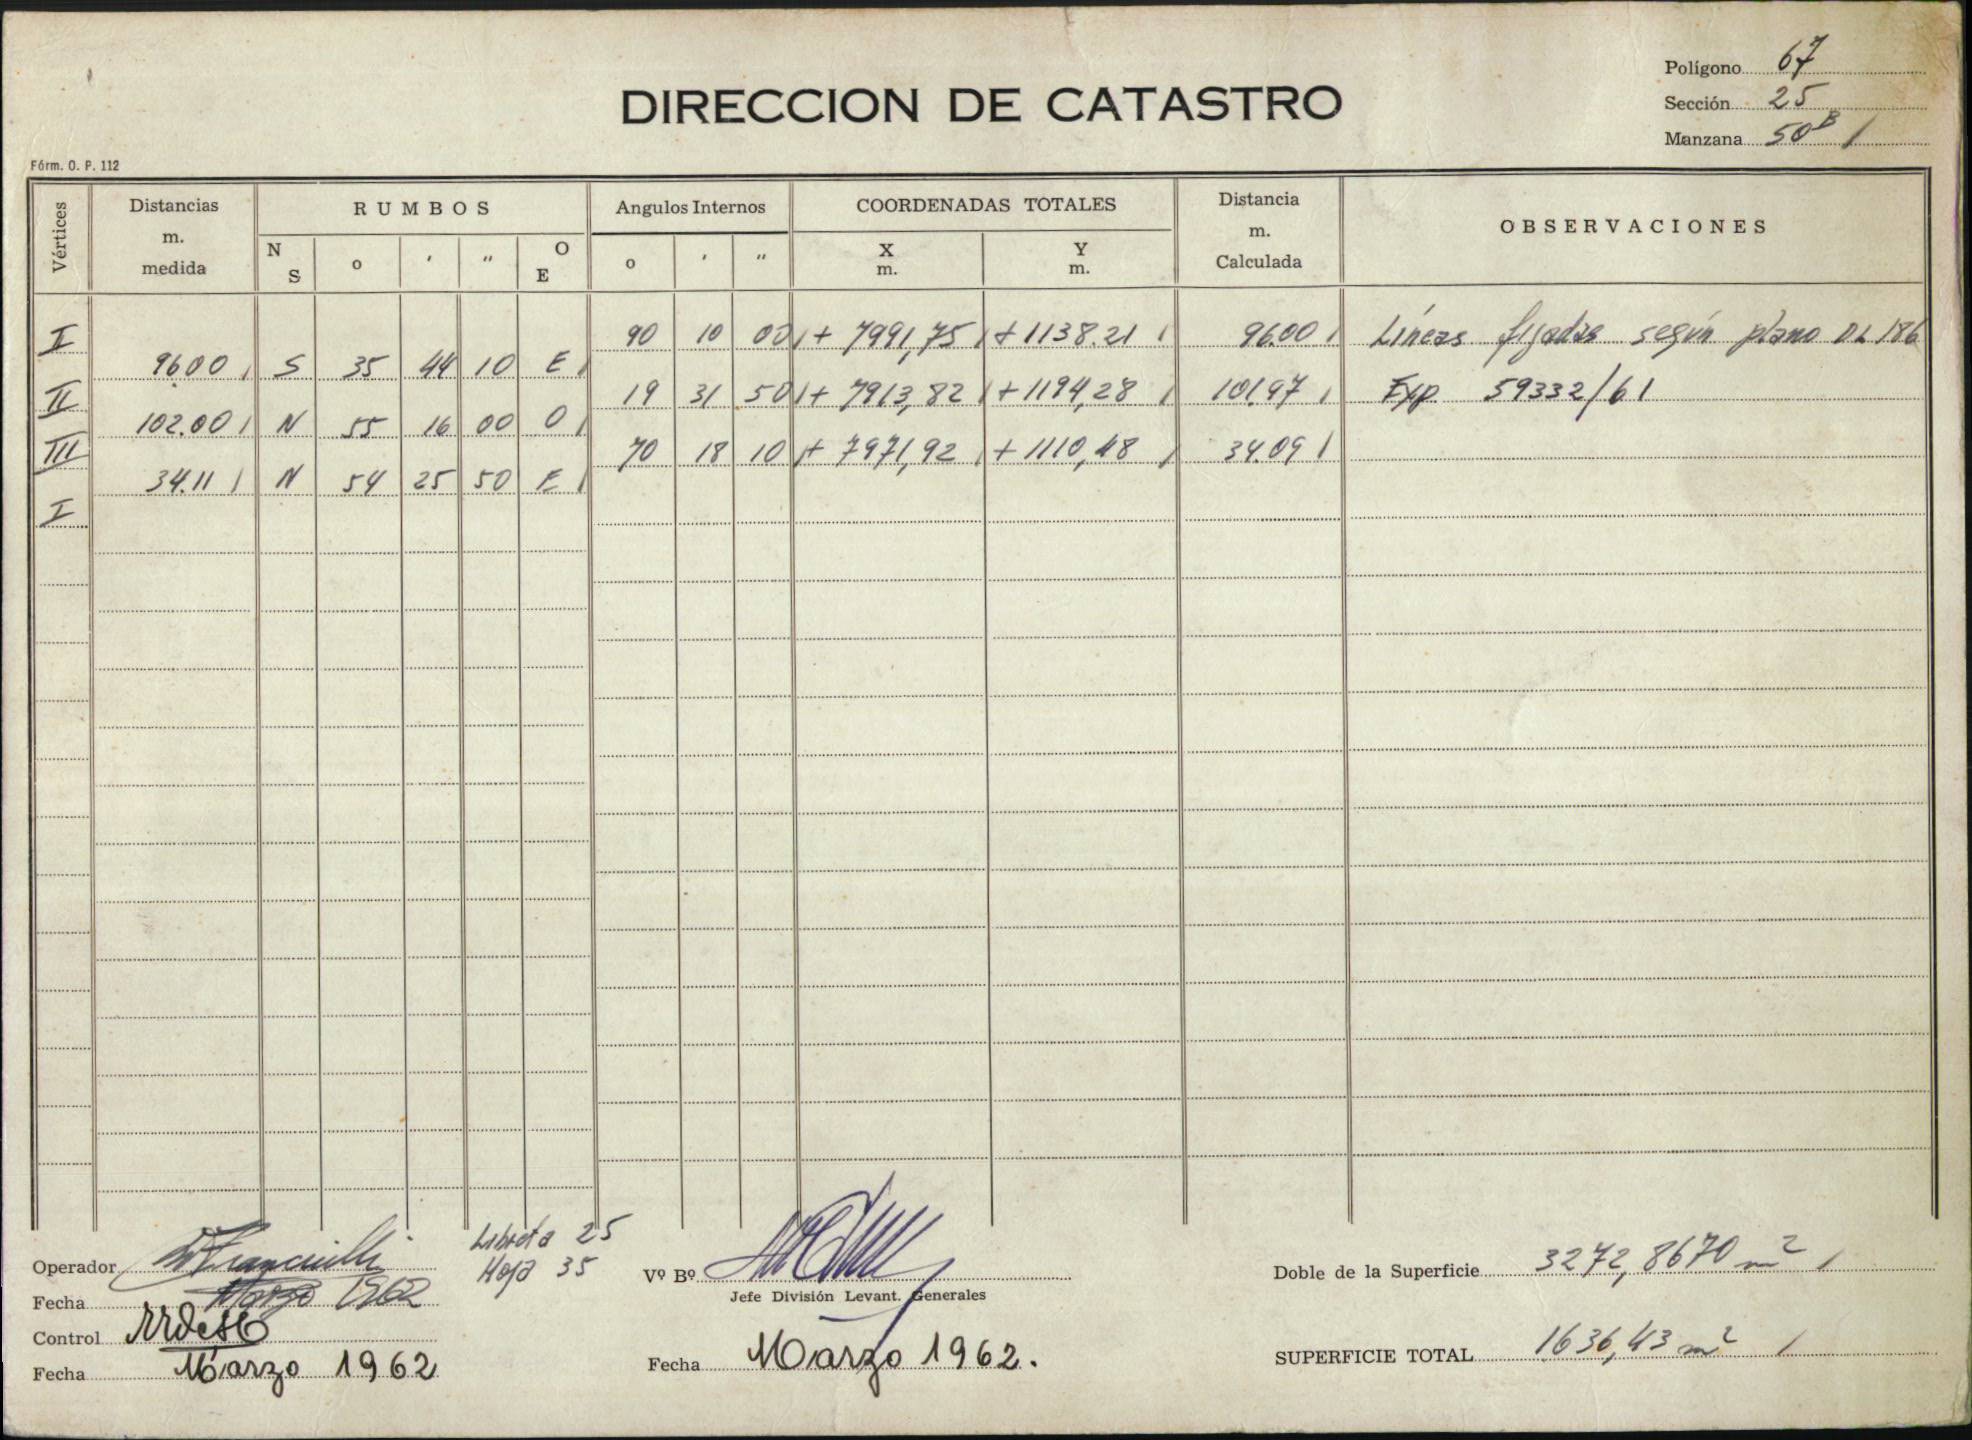 Polígono 67
DIRECCION DE CATASTRO
Sección 25
Manzana 50B
Fórm. O. P. 112
Vértices
Distancias m. medida
RUMBOS
Angulos Internos
COORDENADAS TOTALES
Distancia m. Calculada
OBSERVACIONES
N S o ' " O E
o ' "
X m. Y m.
I 90 10 00 + 7991,75 + 1138.21 96.00 Líneas fijadas según plano DL 186
96.00 S 35 44 10 E
II 19 31 50 + 7913,82 + 1194,28 101.97 Exp 59332/61
102.00 N 55 16 00 O
III 70 18 10 + 7971,92 + 1110,48 34.09
34.11 N 54 25 50 E
I
Libreta 25
Hoja 35
Operador
Vº Bº
Doble de la Superficie 3272,8670 m²
Fecha Marzo 1962
Jefe División Levant. Generales
Control
Fecha Marzo 1962
Fecha Marzo 1962.
SUPERFICIE TOTAL 1636,43 m²